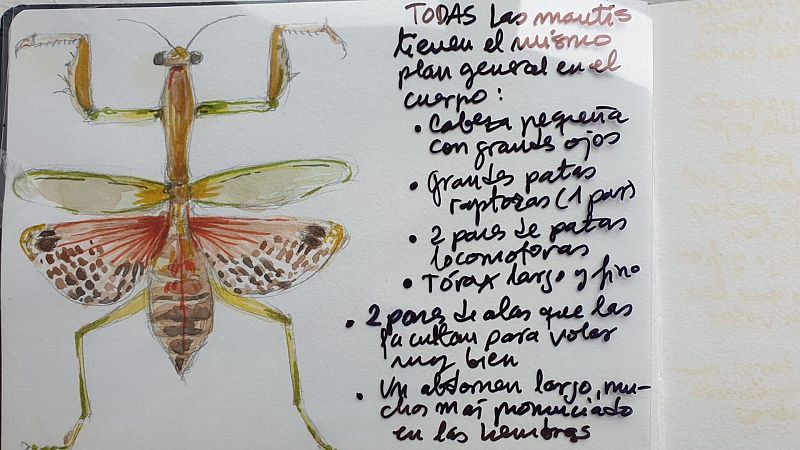 TODAS las mantis
tienen el mismo
plan general en el
cuerpo:
• Cabeza pequeña
con grandes ojos
• Grandes patas
raptoras (1 par)
• 2 pares de patas
locomotoras
• Tórax largo y fino
• 2 pares de alas que las
facultan para volar
muy bien
• Un abdomen largo, mu-
cho más pronunciado
en las hembras